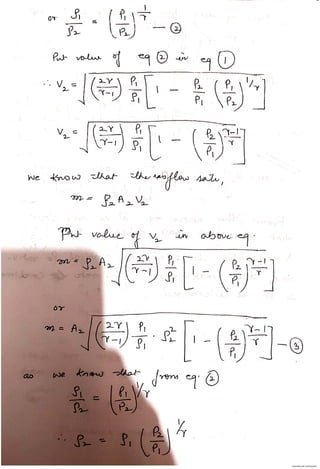 or ρ₁/ρ₂ = (P₁/P₂)^(1/γ) — ②
Put value of eq ② in eq ①
∴ V₂ = √[(2γ/(γ-1)) P₁/ρ₁ [1 - P₂/P₁ (P₁/P₂)^(1/γ)]]
V₂ = √[(2γ/(γ-1)) P₁/ρ₁ [1 - (P₂/P₁)^((γ-1)/γ)]]
we know that the massflow rate,
m = ρ₂ A₂ V₂
Put value of V₂ in above eq.
m = ρ₂ A₂ √[(2γ/(γ-1)) P₁/ρ₁ [1 - (P₂/P₁)^((γ-1)/γ)]]
or
m = A₂ √[(2γ/(γ-1)) P₁/ρ₁ · ρ₂² [1 - (P₂/P₁)^((γ-1)/γ)]] — ③
as we know that from eq. ②
ρ₁/ρ₂ = (P₁/P₂)^(1/γ)
∴ ρ₂ = ρ₁ (P₂/P₁)^(1/γ)